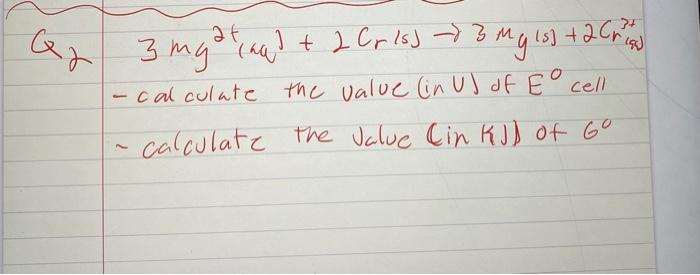 Q2 3 mg²⁺(aq) + 2 Cr(s) → 3 Mg(s) + 2Cr³⁺(aq)
- calculate the value (in V) of E° cell
- calculate the value (in KJ) of G°